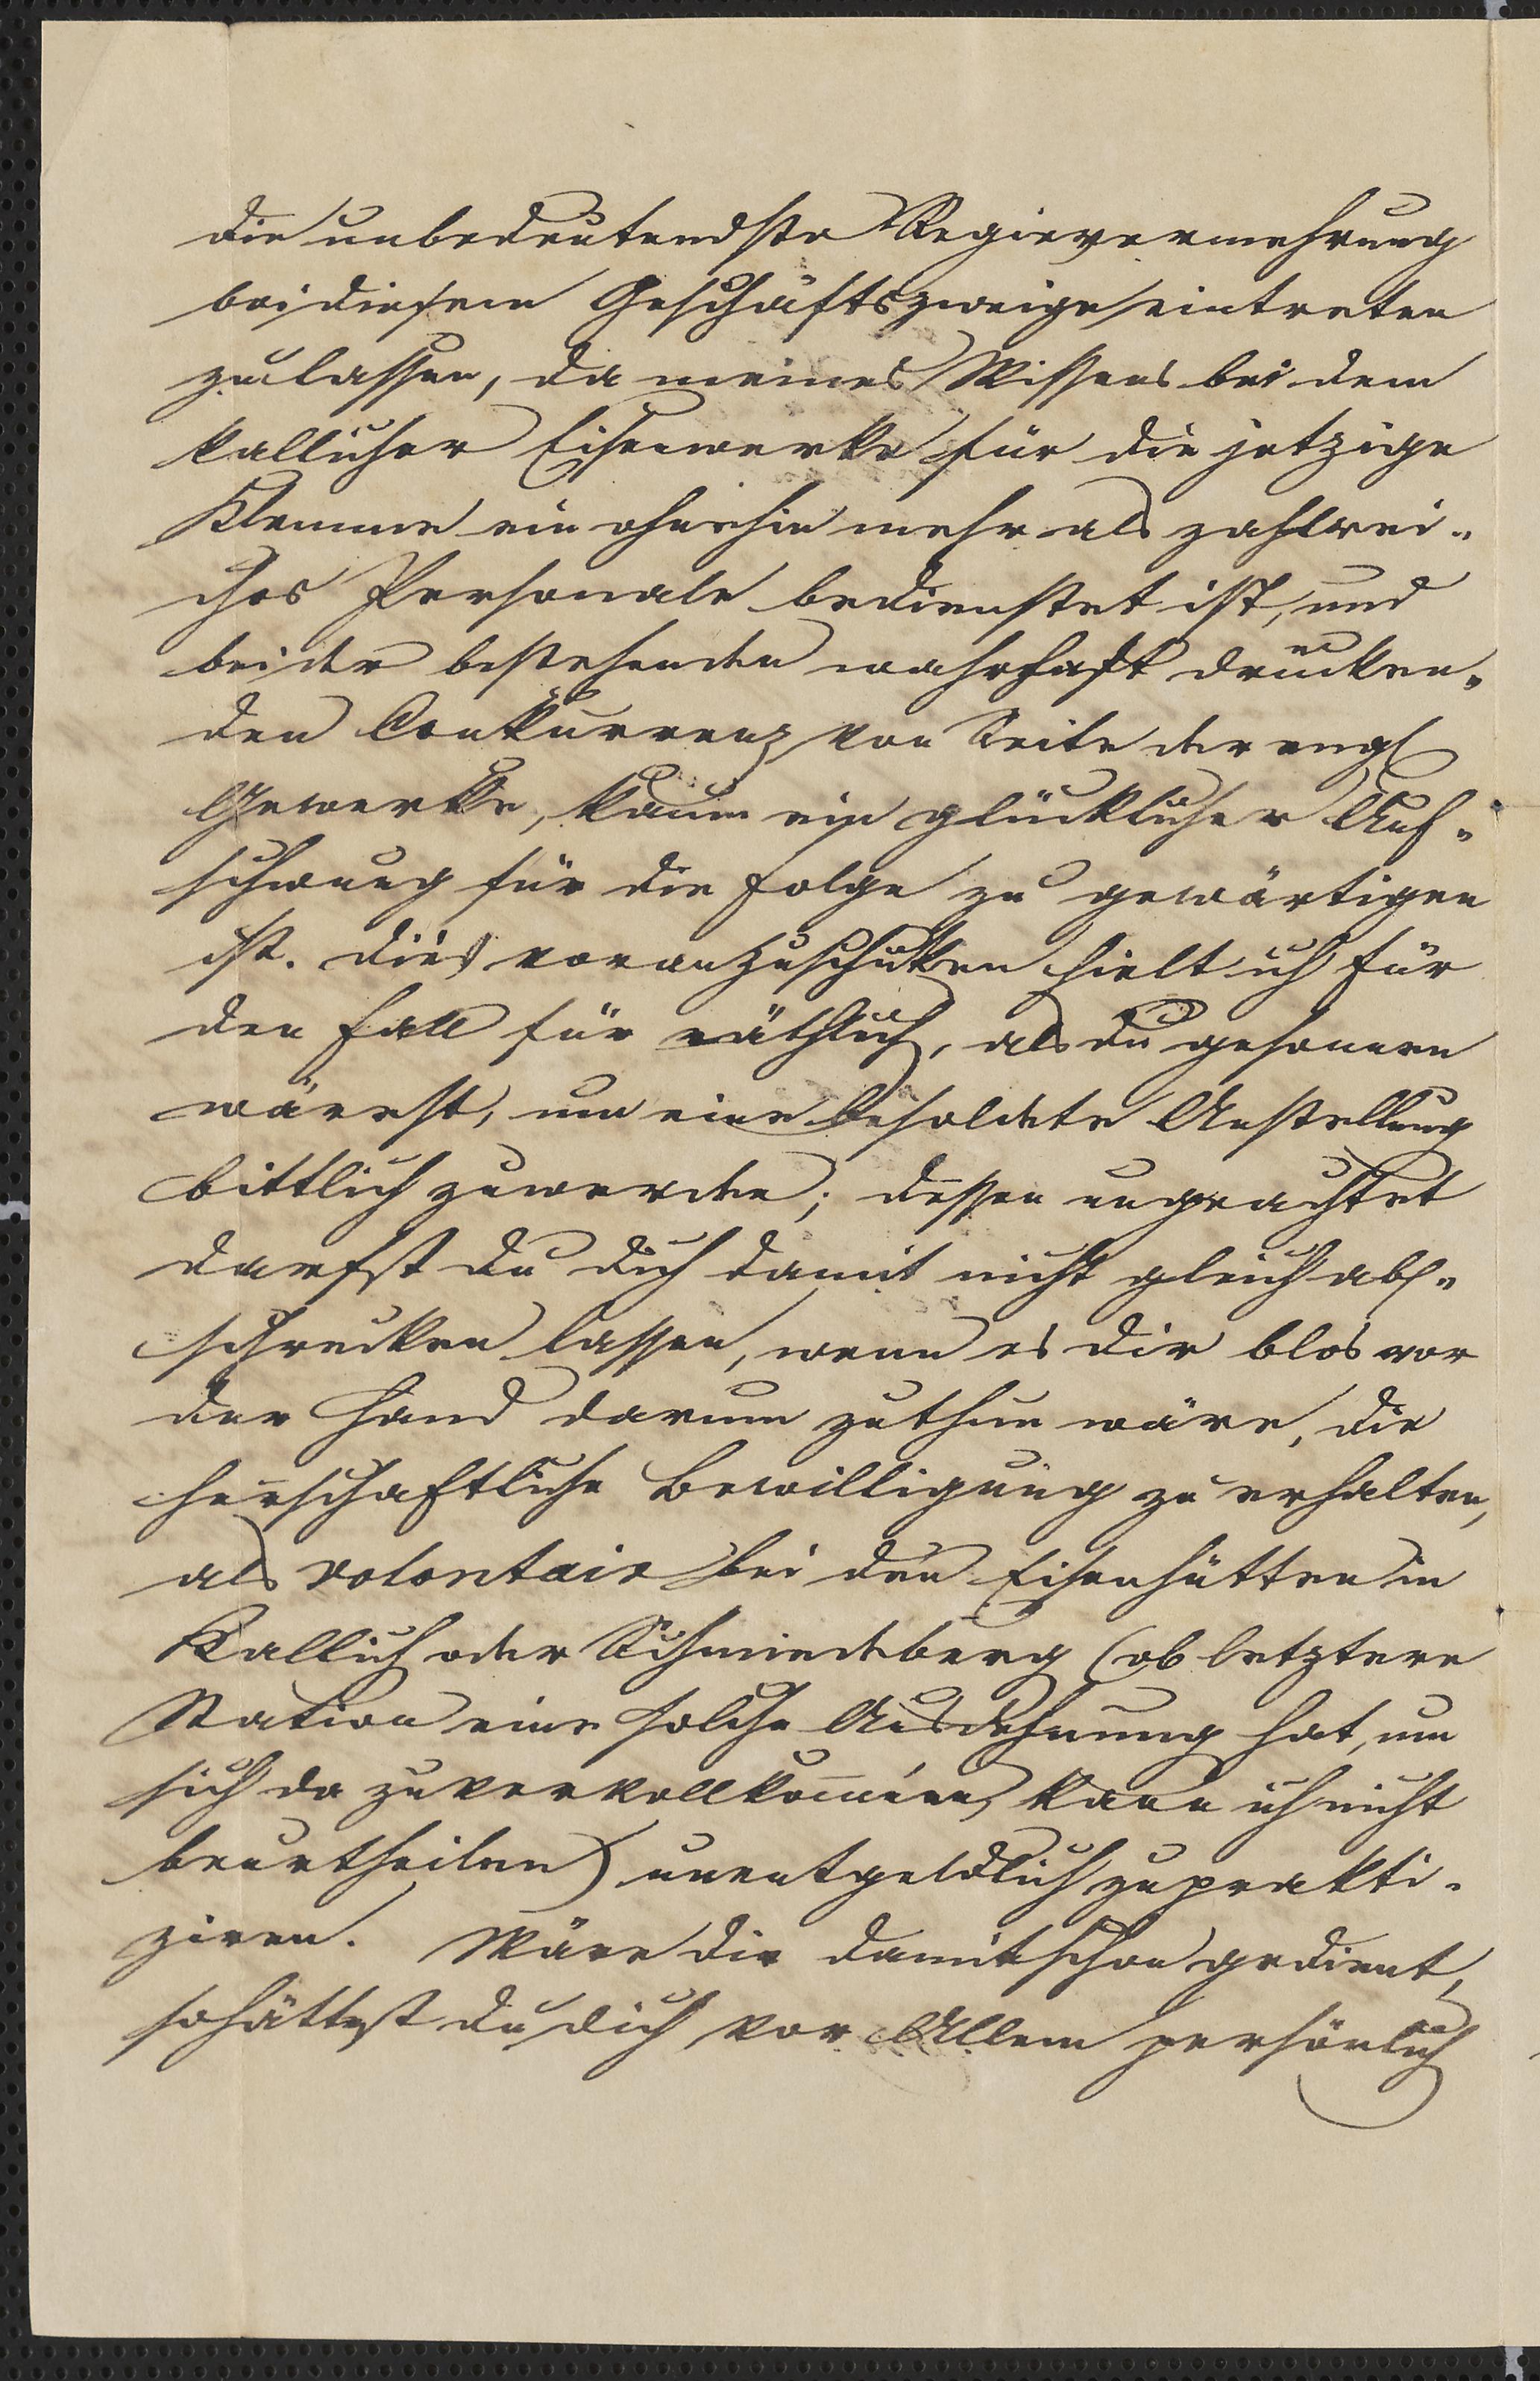 die unbedeutendste Regievermehrung
bei diesem Geschäftszweige eintreten
zu lassen, da meines Wissens bei dem
kallicher Eisenwerke für die jetzige
Klemme ein ohnehin mehr als zahlrei„
ches Personale bedienstet ist, und
bei der bestehenden wahrhaft drücken„
den Conkurrenz von Seite der engl
Gewerke, kaum ein glücklicher Auf„
schwung für die Folge zu gewärtigen
ist. Dies voranzuschicken hielt ich für
den Fall für räthlich, als du gesonnen
wärest, um eine besoldete Anstellung
bittlich zu werden; dessen ungeachtet
darfst du dich damit nicht gleich ab„
schrecken lassen, wenn es dir blos vor
der Hand darum zuthun wäre, die
herrschaftliche Bewilligung zu erhalten,
als volontair bei den Eisenhütten in
Kallich oder Schmiedeberg (ob letztere
Station eine solche Ausdehnung hat, um
sich da zu vervollkom̅nen, kann ich nicht
beurtheilen) unentgeldlich zu prakti„
ziren. Wäre dir damit schon gedient,
so hättest du dich vor Allem persönlich